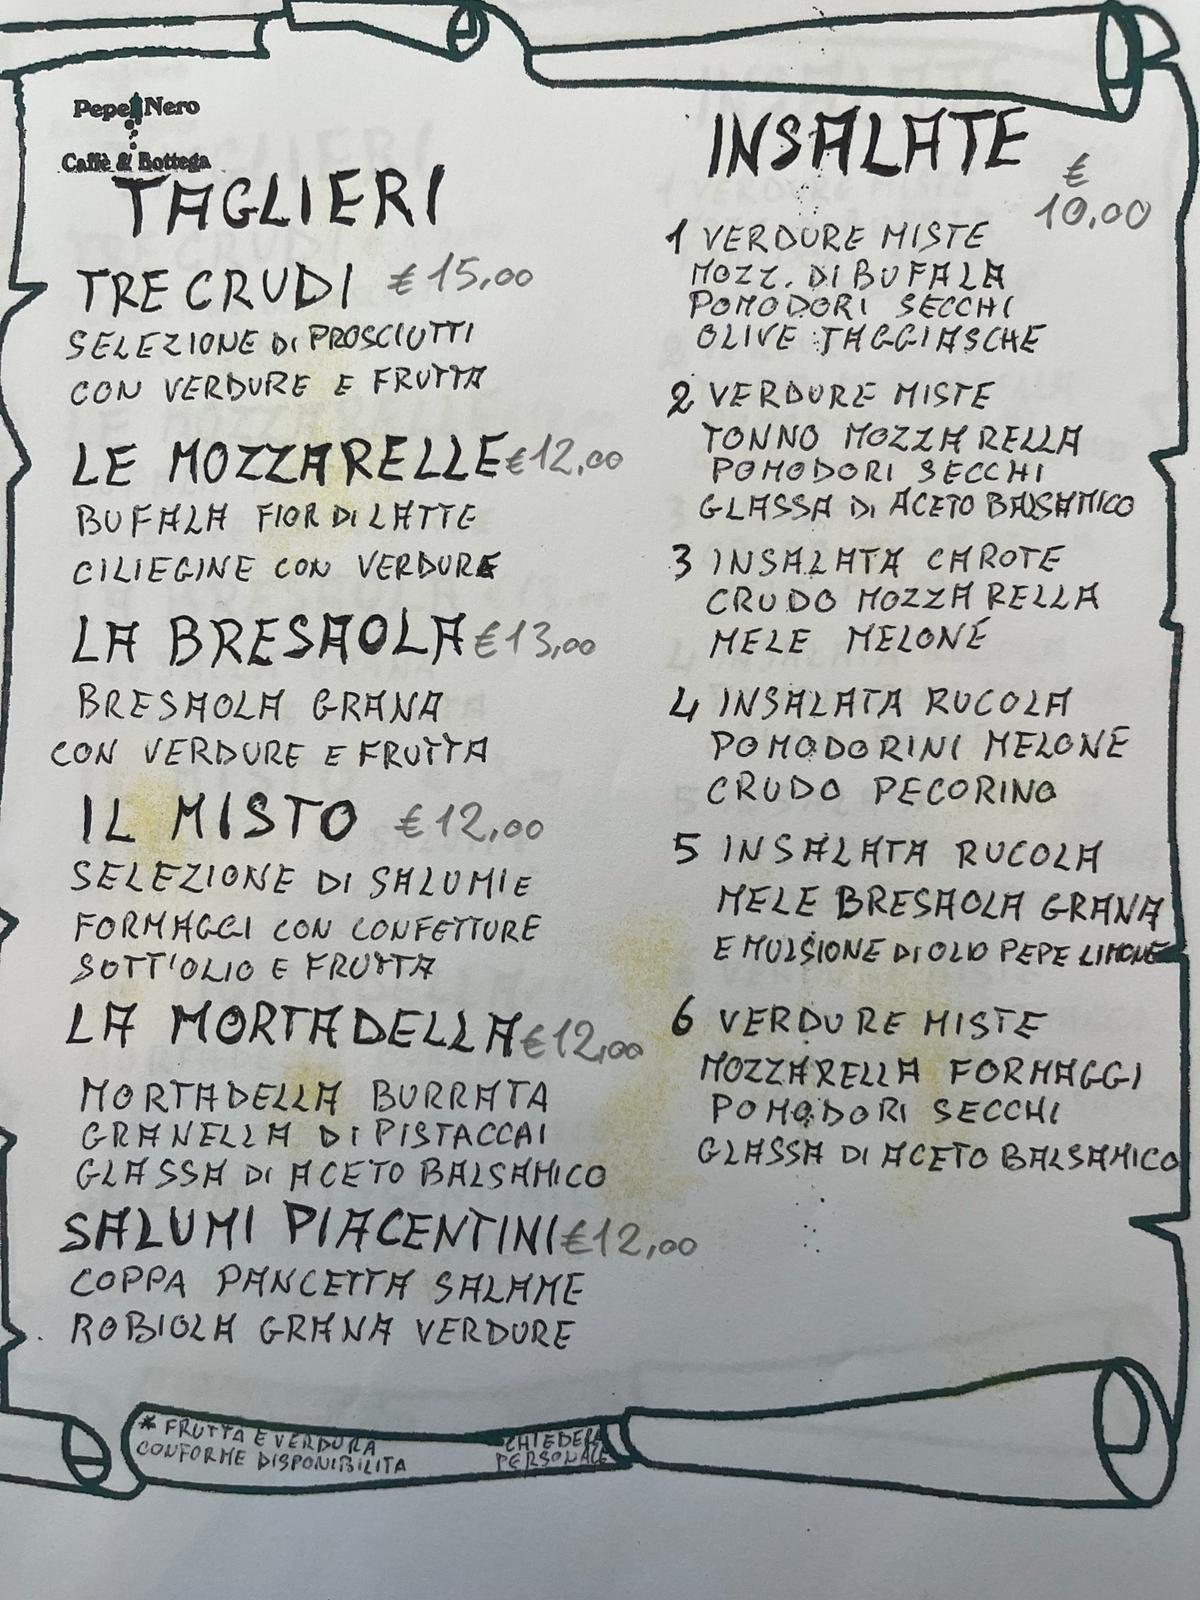 Pepe Nero
Caffè & Bottega
TAGLIERI
TRE CRUDI €15,00
SELEZIONE DI PROSCIUTTI
CON VERDURE E FRUTTA
LE MOZZARELLE €12,00
BUFALA FIOR DI LATTE
CILIEGINE CON VERDURE
LA BRESAOLA €13,00
BRESAOLA GRANA
CON VERDURE E FRUTTA
IL MISTO €12,00
SELEZIONE DI SALUMI E
FORMAGGI CON CONFETTURE
SOTT'OLIO E FRUTTA
LA MORTADELLA €12,00
MORTADELLA BURRATA
GRANELLA DI PISTACCAI
GLASSA DI ACETO BALSAMICO
SALUMI PIACENTINI €12,00
COPPA PANCETTA SALAME
ROBIOLA GRANA VERDURE
* FRUTTA E VERDURA
CONFORME DISPONIBILITA
CHIEDERE
PERSONALE
INSALATE
€
10.00
1 VERDURE MISTE
MOZZ. DI BUFALA
POMODORI SECCHI
OLIVE TAGGIASCHE
2 VERDURE MISTE
TONNO MOZZARELLA
POMODORI SECCHI
GLASSA DI ACETO BALSAMICO
3 INSALATA CAROTE
CRUDO MOZZARELLA
MELE MELONE
4 INSALATA RUCOLA
POMODORINI MELONE
CRUDO PECORINO
5 INSALATA RUCOLA
MELE BRESAOLA GRANA
EMULSIONE DI OLIO PEPE LIMONE
6 VERDURE MISTE
MOZZARELLA FORMAGGI
POMODORI SECCHI
GLASSA DI ACETO BALSAMICO